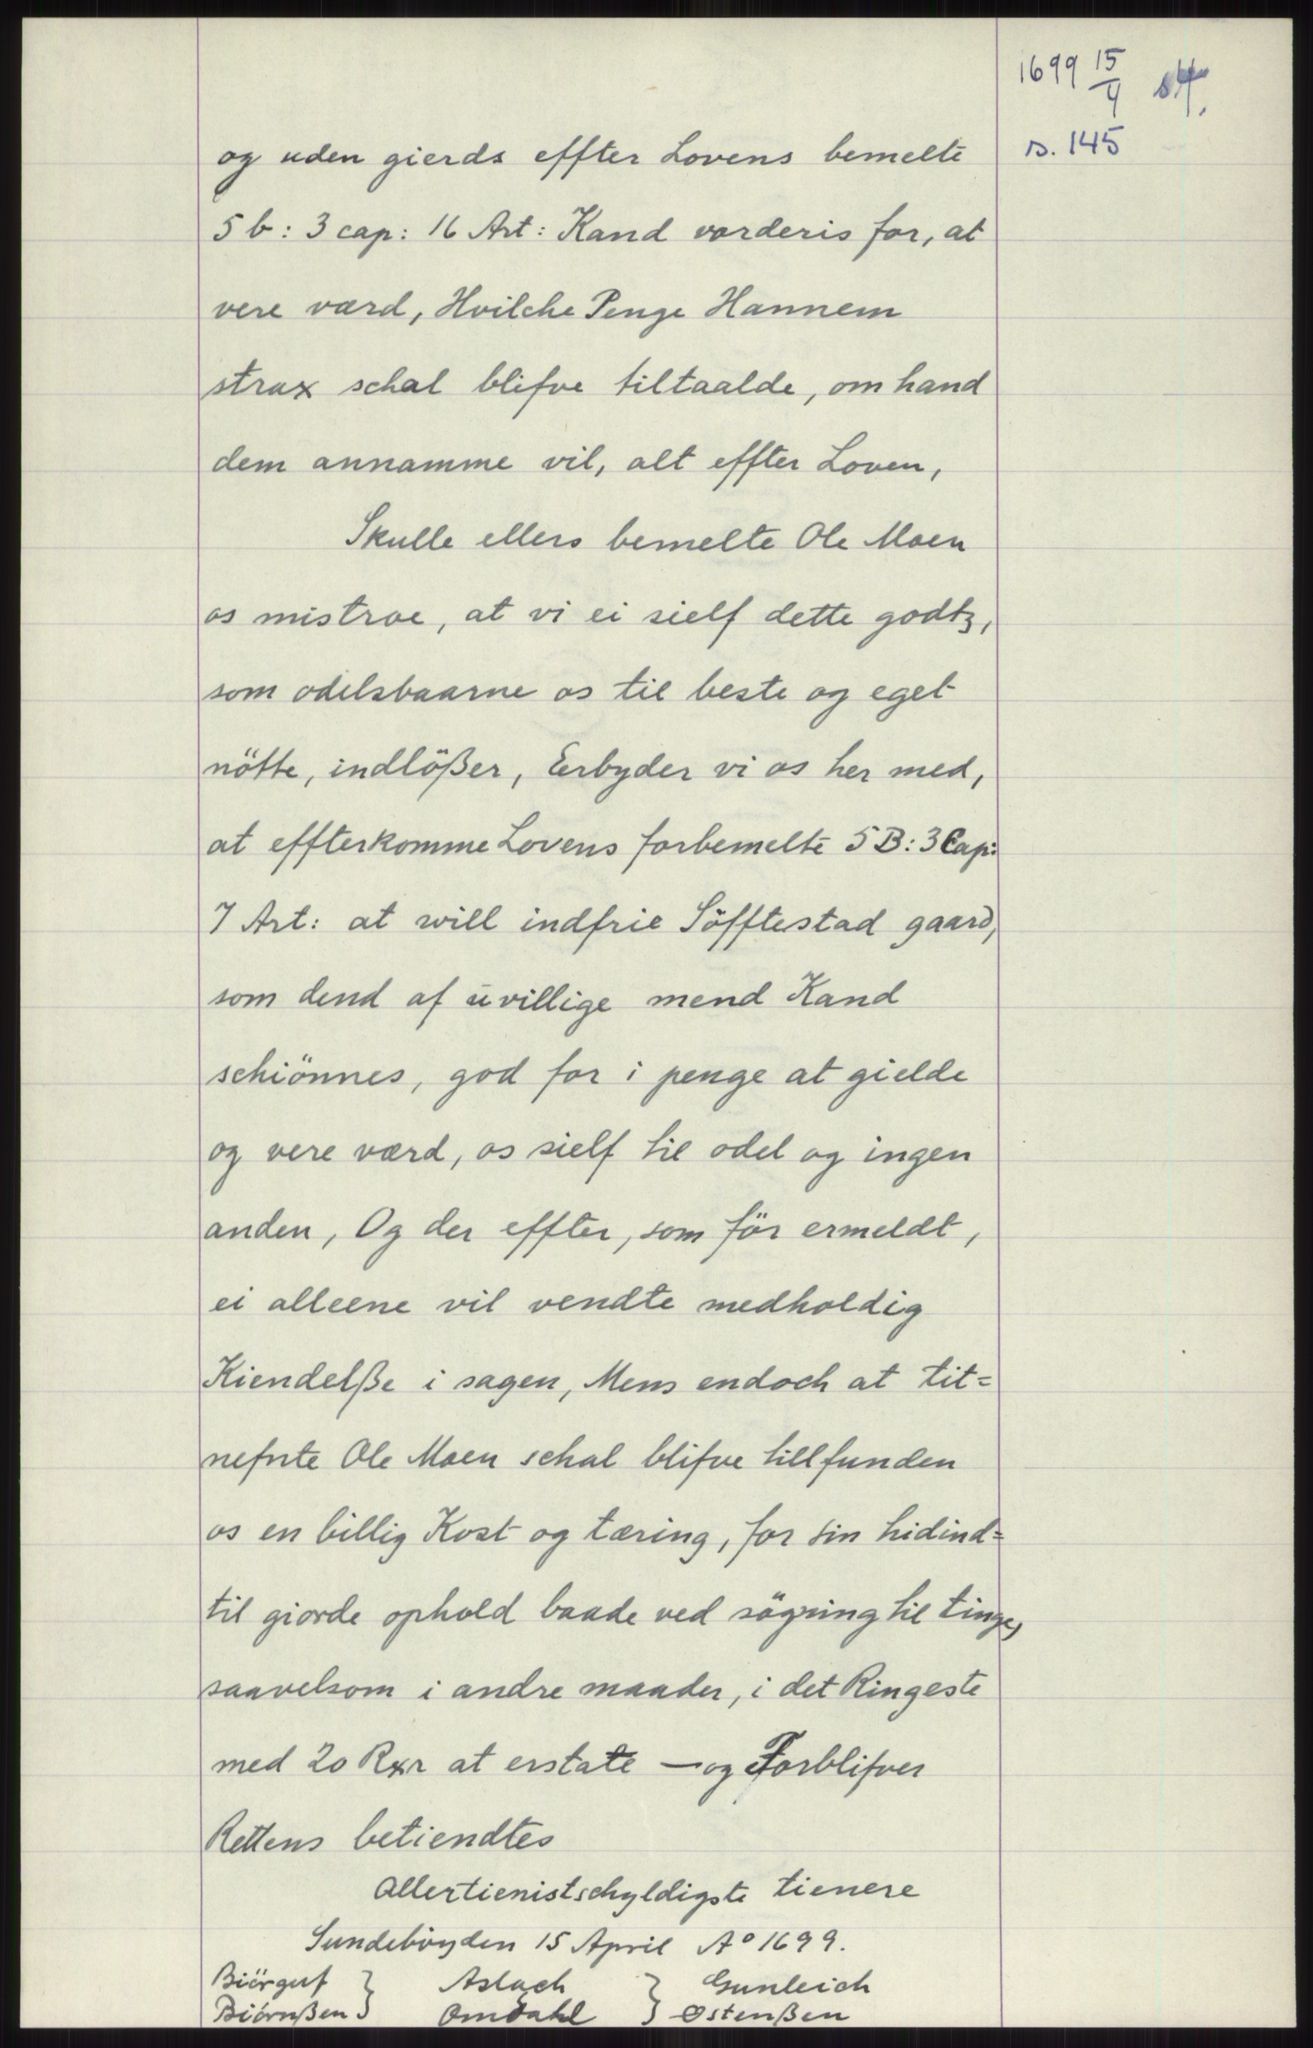 1699 15/4
s. 145
og uden gierds effter Lovens bemelte
5 b: 3 cap: 16 Art: Kand vorderis for, at
vere værd, Hvilche Penge Hannem
strax schal blifve tiltaalde, om hand
dem annamme vil, alt effter Loven,
Skulle ellers bemelte Ole Moen
os mistroe, at vi ei sielf dette godtz,
som odelsbaarne os til beste og eget
nötte, indlößer, Erbyder vi os her med,
at effterkomme Lovens forbemelte 5 B: 3 Cap:
7 Art: at will indfrie Söfftestad gaard,
som dend af uvillige mend Kand
schiönnes, god for i penge at gielde
og vere værd, os sielf til odel og ingen
anden, Og der effter, som för ermeldt,
ei alleene vil vendte medholdig
Kiendelße i sagen, Mens endoch at tit=
nefnte Ole Moen schal blifve tillfunden
os en billig Kost og tæring, for sin hidind=
til giorde ophold baade ved sögning til tinge,
saavelsom i andre maader, i det Ringeste
med 20 Rxr at erstate — og Forblifver
Rettens betiendtes
Allertienistschyldigste tienere
Sundeböyden 15 April Aº 1699.
Biörguf } Aslach } Gunleich
Biörnßen } Omdahl } Ostenßen